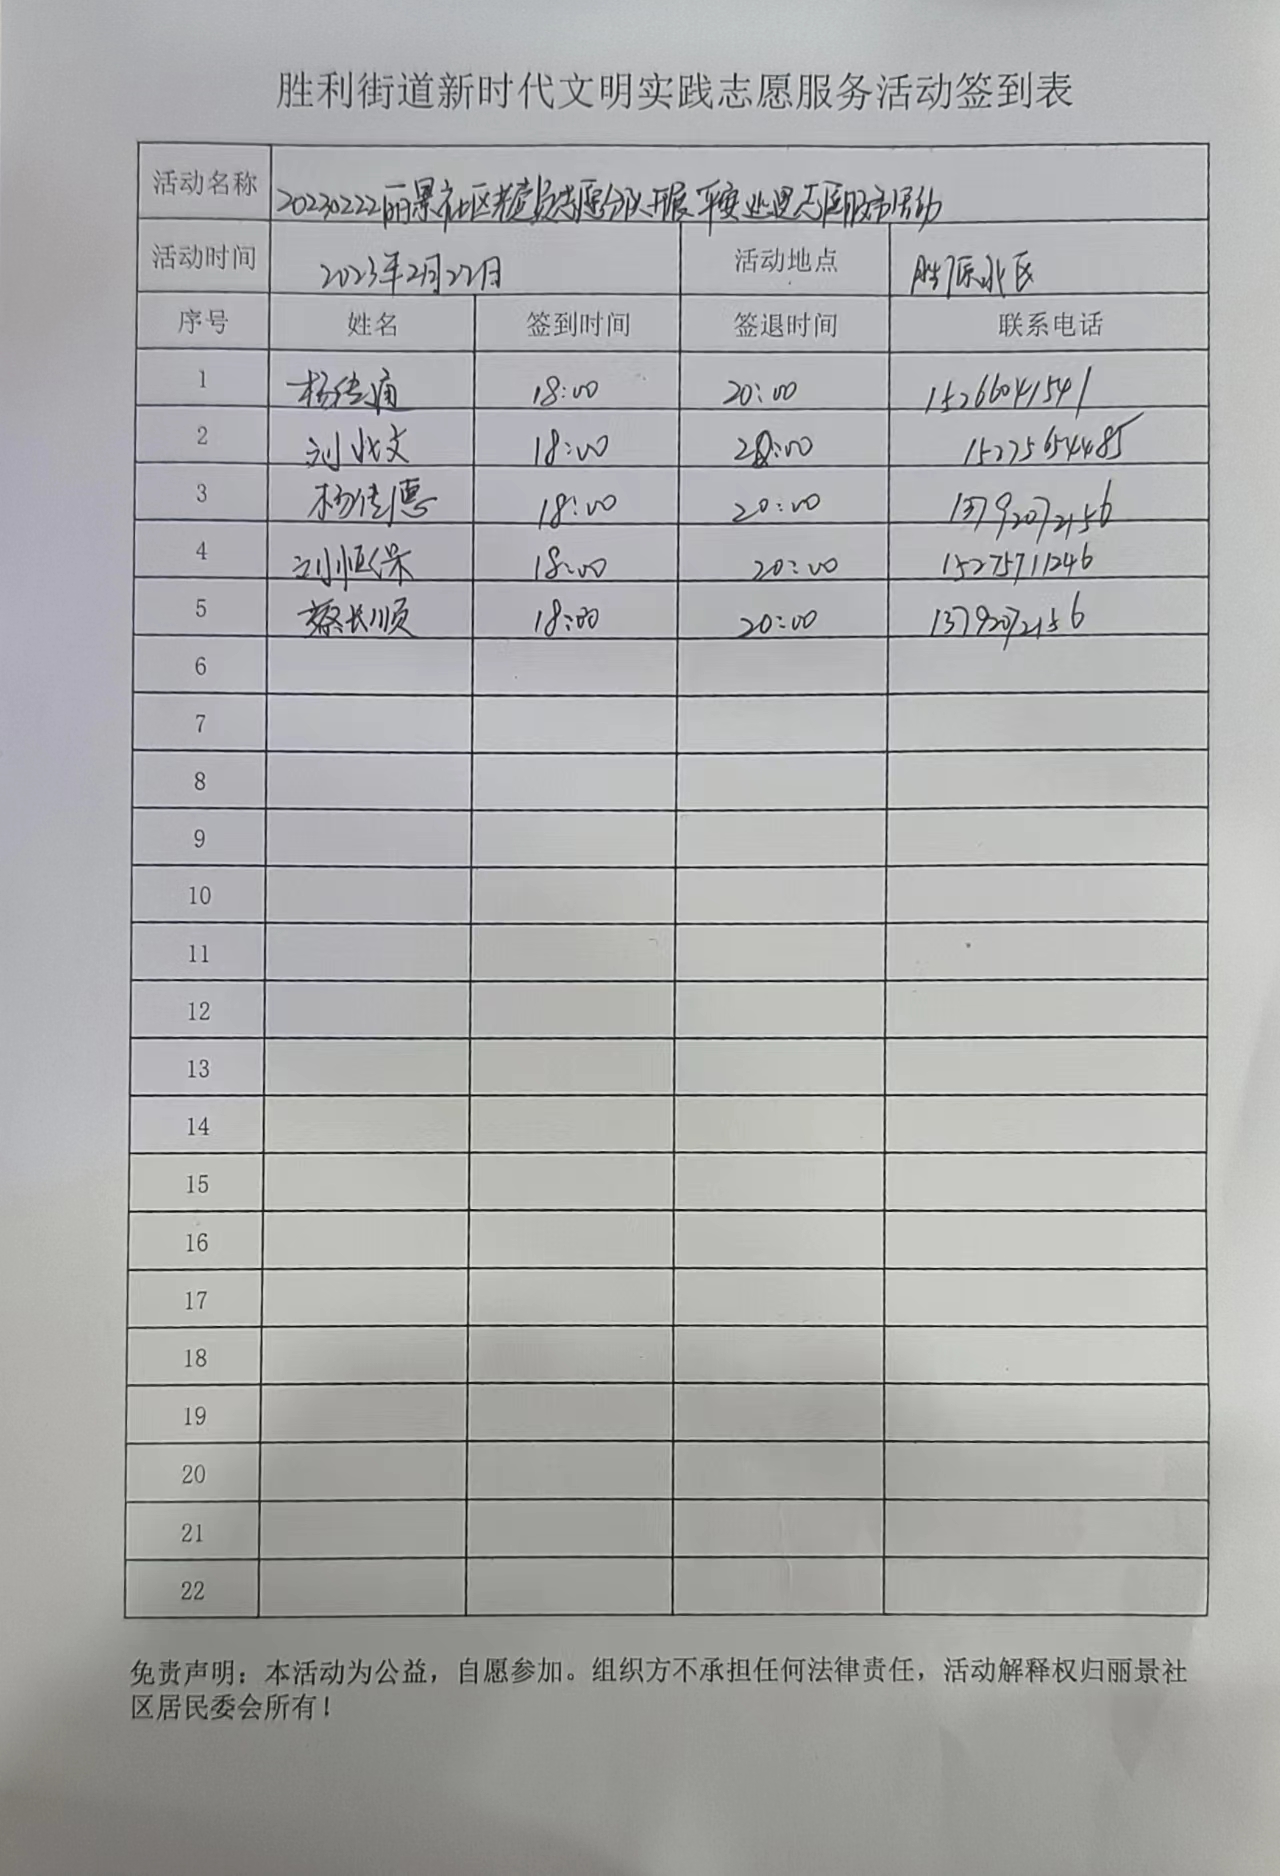 胜利街道新时代文明实践志愿服务活动签到表
活动名称 20230222丽景社区老党员志愿分队开展平安巡逻志愿服务活动
活动时间 2023年2月22日 活动地点 胜原北区
序号 姓名 签到时间 签退时间 联系电话
1 杨传甫 18:00 20:00 15266041541
2 刘化文 18:00 20:00 15275654485
3 杨传德 18:00 20:00 13792072156
4 刘恒保 18:00 20:00 15275711246
5 蔡长顺 18:00 20:00 13792072156
6
7
8
9
10
11
12
13
14
15
16
17
18
19
20
21
22
免责声明：本活动为公益，自愿参加。组织方不承担任何法律责任，活动解释权归丽景社
区居民委会所有！